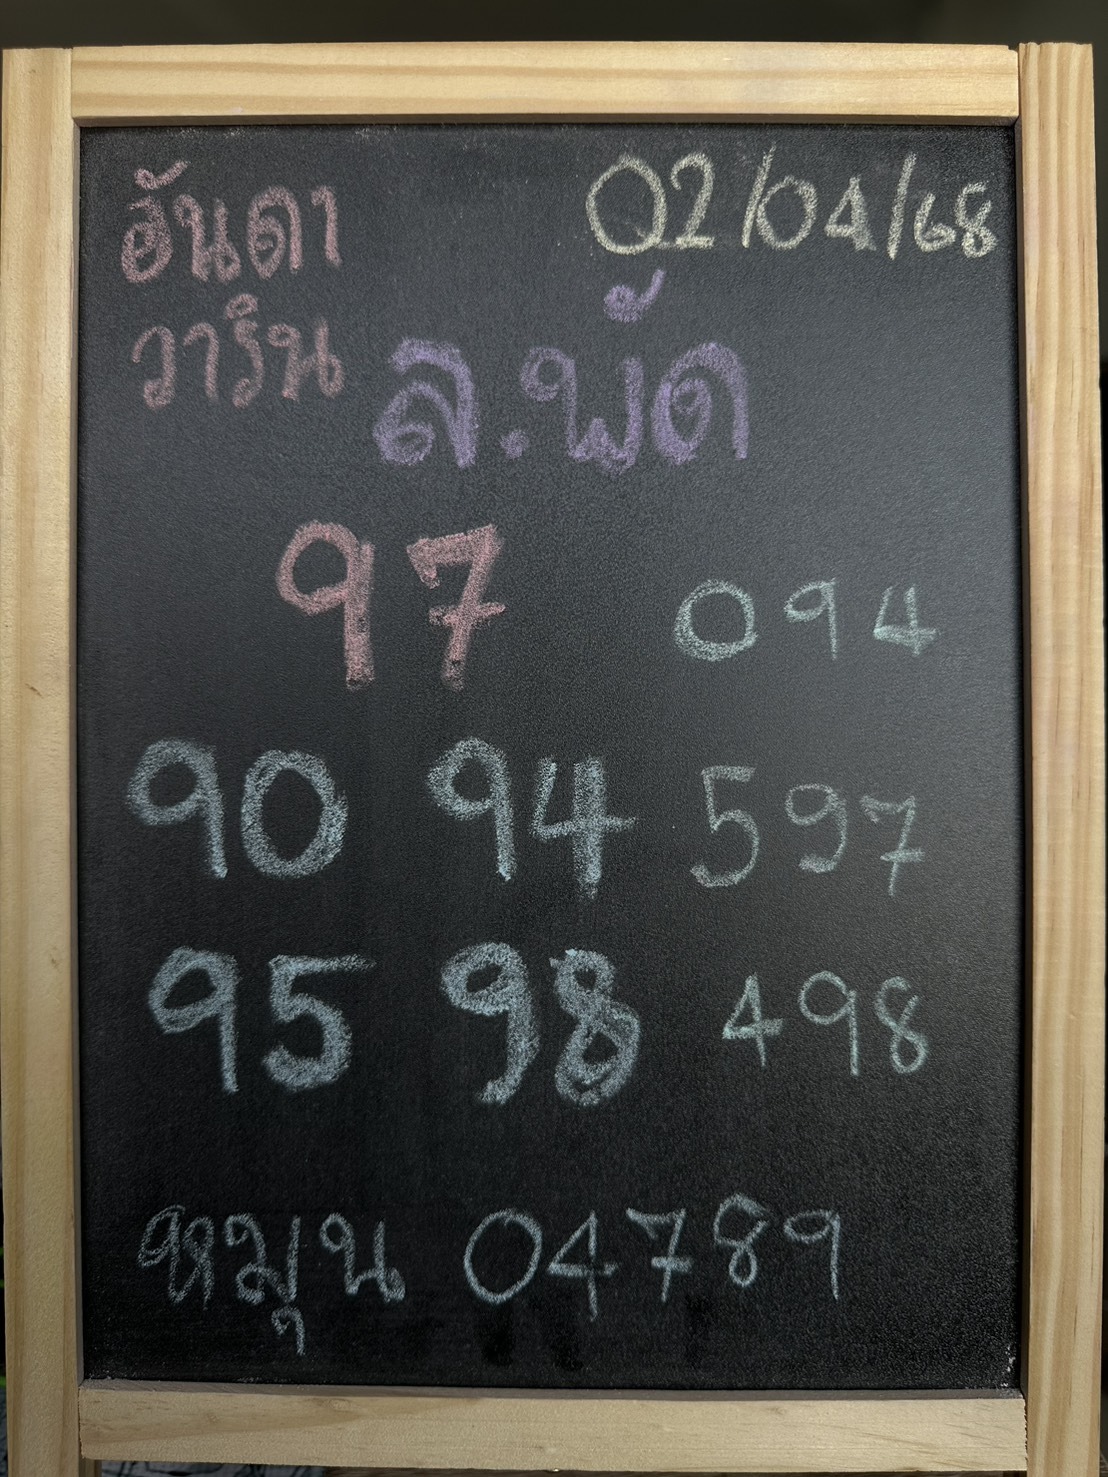 อันดา 02/04/68
วาริน
ล.พัด
97 094
90 94 597
95 98 498
หมุน 04789